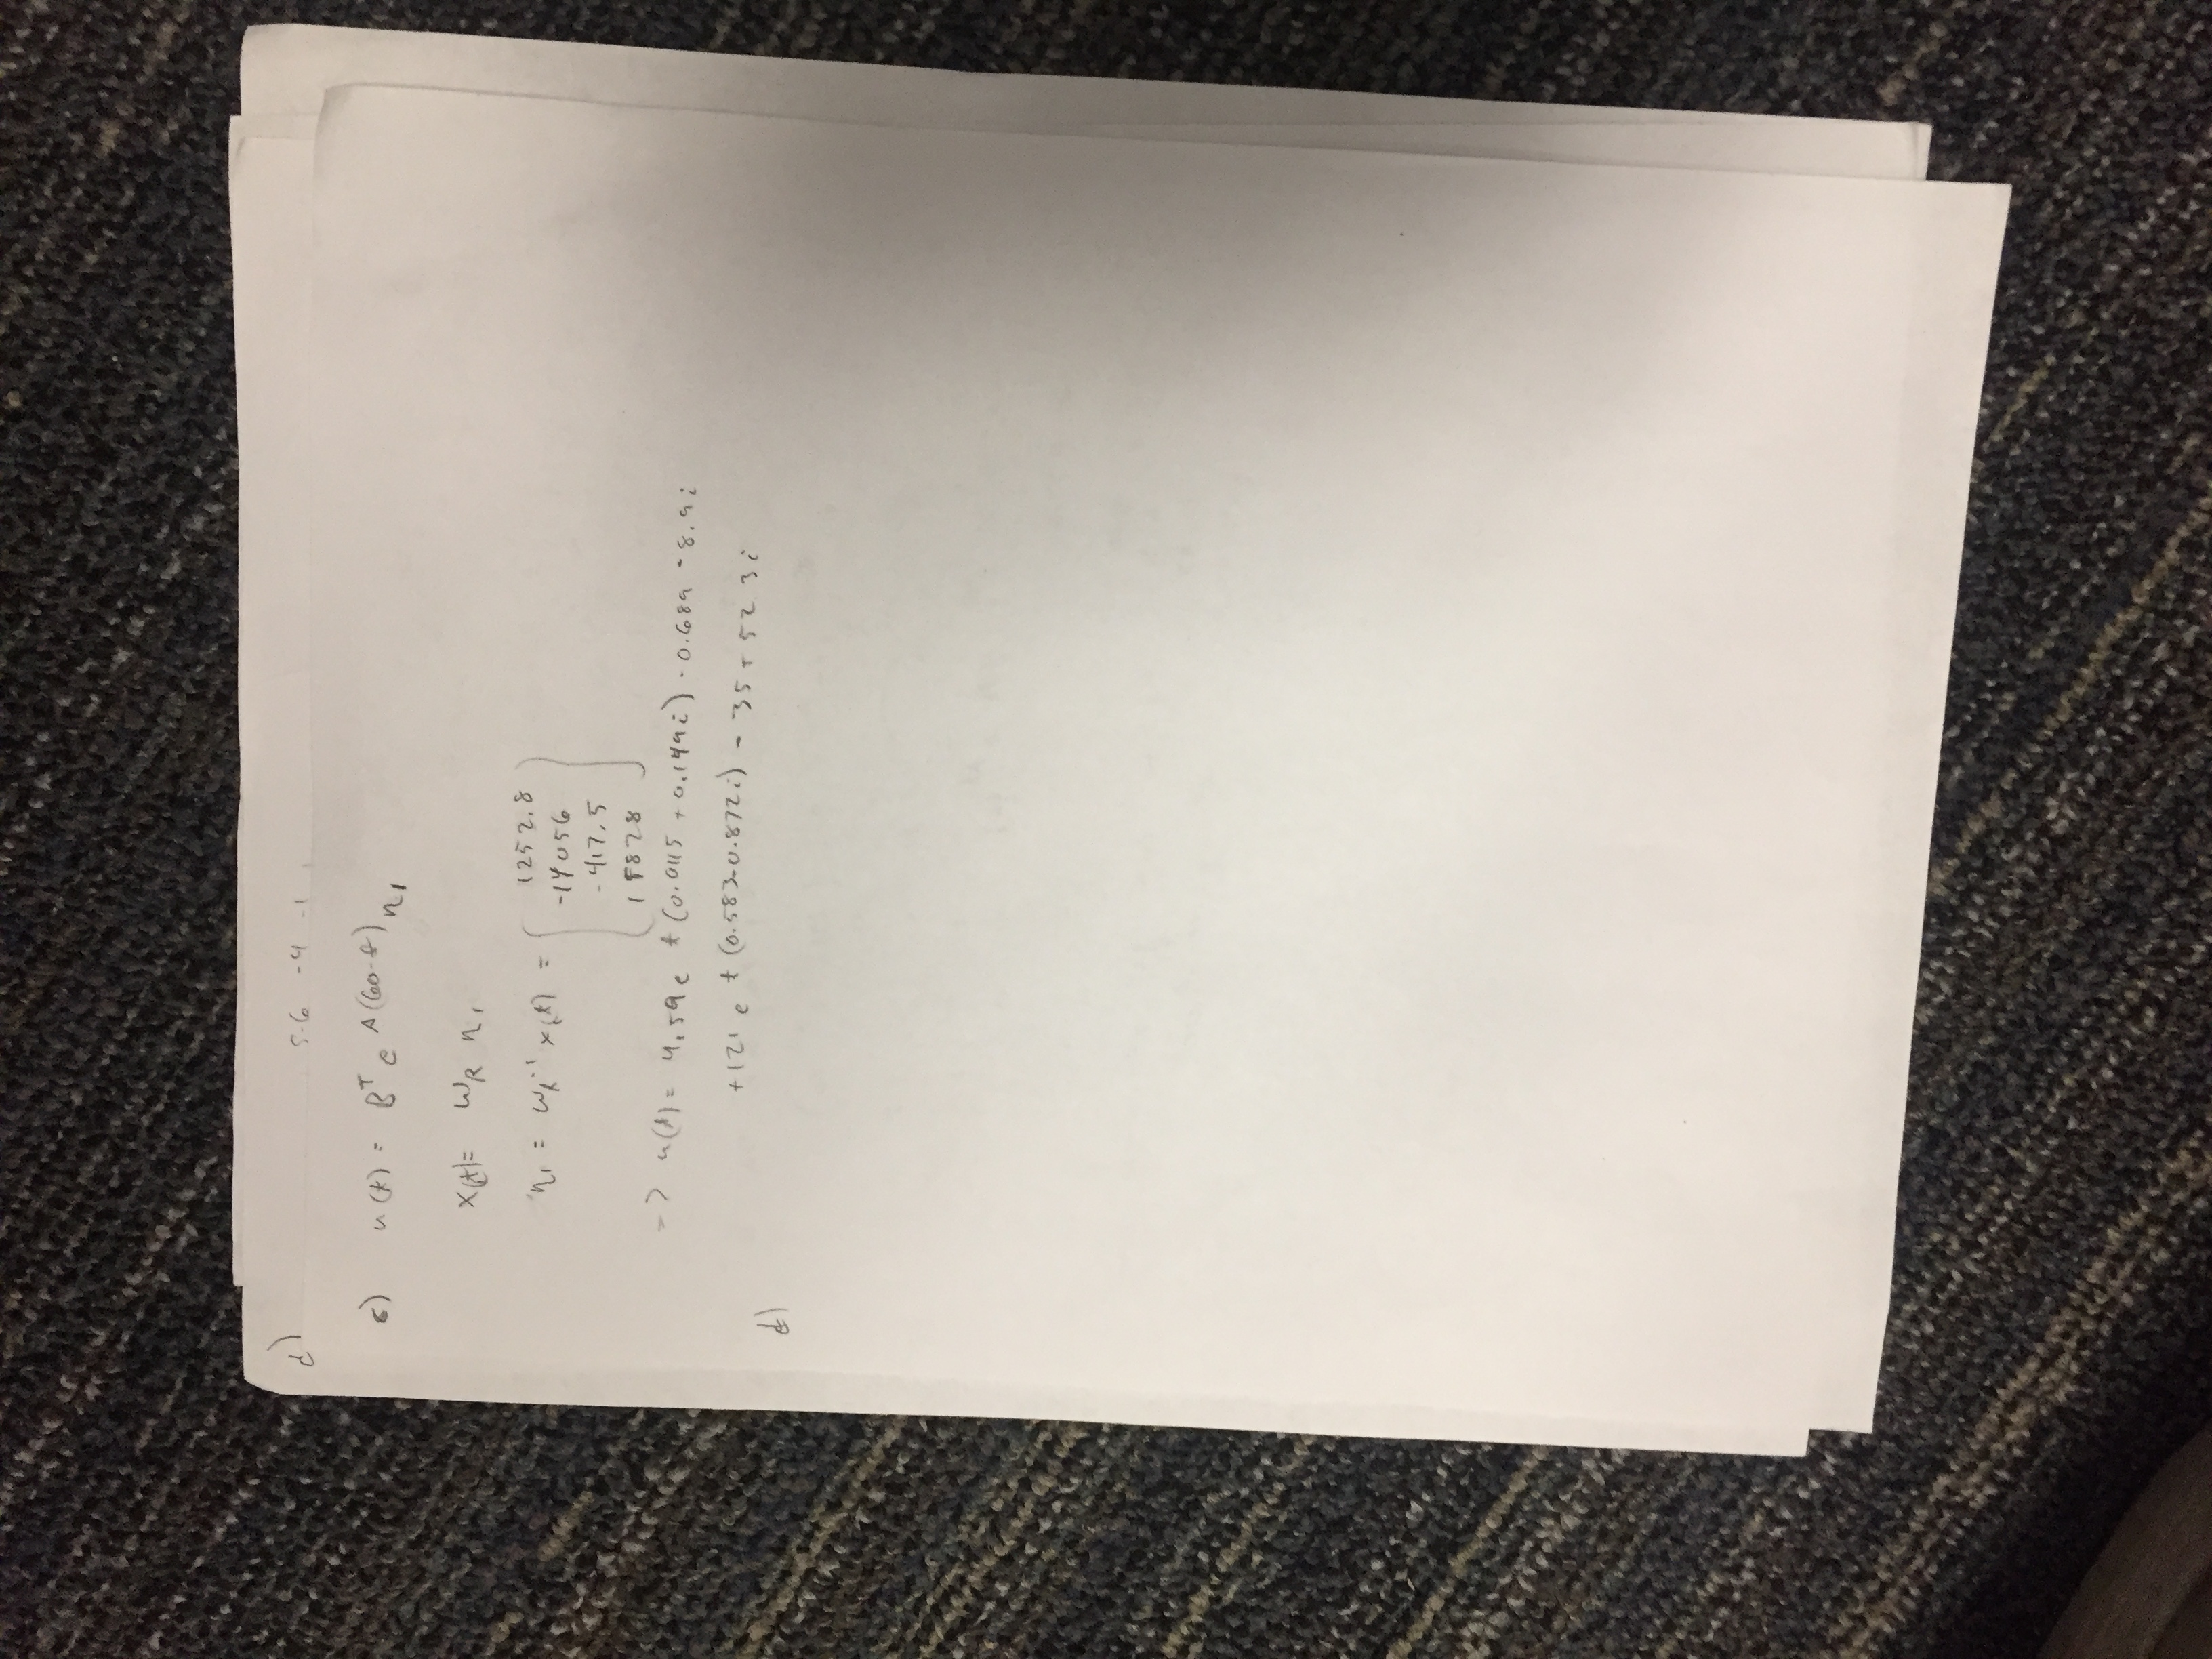 d) 5-6 -4 -1
c) u(t) = B^T e^{A(60-t)} η₁
x(t) = W_R η₁
η₁ = W_R^{-1} x(t) = ( 1252.8
-14056
-417.5
)
=> u(t) = 4.59 e^{t(0.0115 + 0.149i) - 0.689 - 8.9i}
+121 e^{t(0.583-0.872i) - 35 + 52.3i}
d)